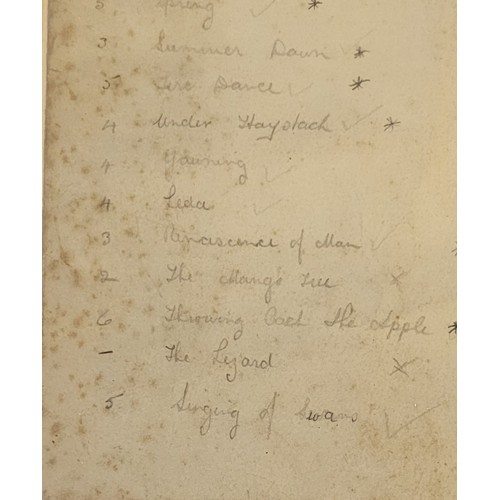 5 Spring ✓ *
3 Summer Dawn ✓ *
5 Fire Dance ✓ *
4 Under Haystack ✓ *
4 Yawning ✓
4 Leda ✓
3 Renascence of Man ✓ *
2 The Mango Tree ×
6 Throwing Back The Apple *
- The Lizard ×
5 Singing of Swans ✓